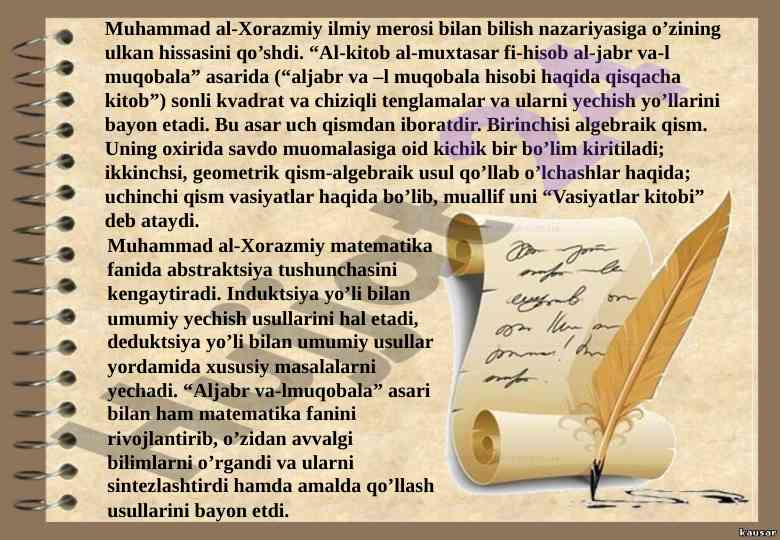 Muhammad al-Xorazmiy ilmiy merosi bilan bilish nazariyasiga o’zining
ulkan hissasini qo’shdi. “Al-kitob al-muxtasar fi-hisob al-jabr va-l
muqobala” asarida (“aljabr va –l muqobala hisobi haqida qisqacha
kitob”) sonli kvadrat va chiziqli tenglamalar va ularni yechish yo’llarini
bayon etadi. Bu asar uch qismdan iboratdir. Birinchisi algebraik qism.
Uning oxirida savdo muomalasiga oid kichik bir bo’lim kiritiladi;
ikkinchsi, geometrik qism-algebraik usul qo’llab o’lchashlar haqida;
uchinchi qism vasiyatlar haqida bo’lib, muallif uni “Vasiyatlar kitobi”
deb ataydi.
Muhammad al-Xorazmiy matematika
fanida abstraktsiya tushunchasini
kengaytiradi. Induktsiya yo’li bilan
umumiy yechish usullarini hal etadi,
deduktsiya yo’li bilan umumiy usullar
yordamida xususiy masalalarni
yechadi. “Aljabr va-lmuqobala” asari
bilan ham matematika fanini
rivojlantirib, o’zidan avvalgi
bilimlarni o’rgandi va ularni
sintezlashtirdi hamda amalda qo’llash
usullarini bayon etdi.
kausar